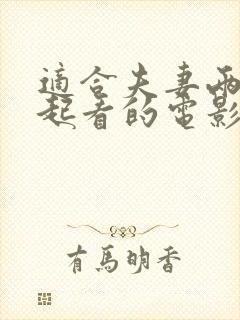 適合夫妻兩
起看的電影
有馬明香